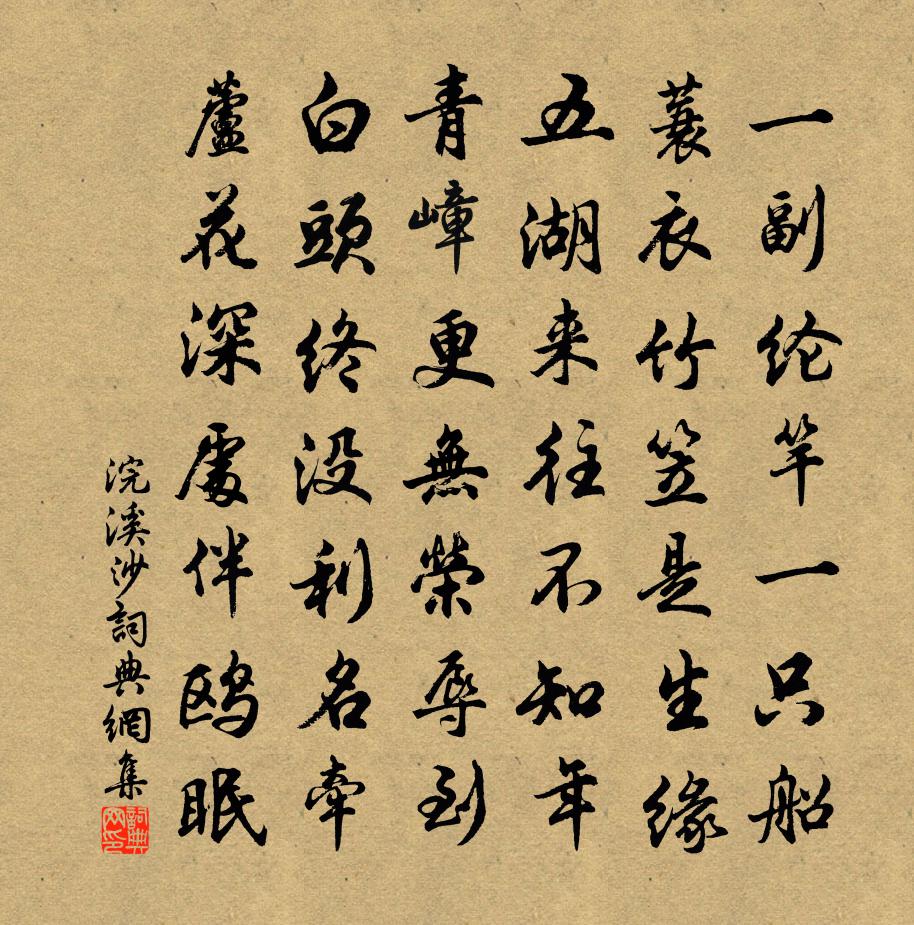 一副纶竿一只船
蓑衣竹笠是生缘
五湖来往不知年
青嶂更無榮辱到
白頭终没利名牵
蘆花深處伴鸥眠
浣溪沙詞典網集
詞典
网印